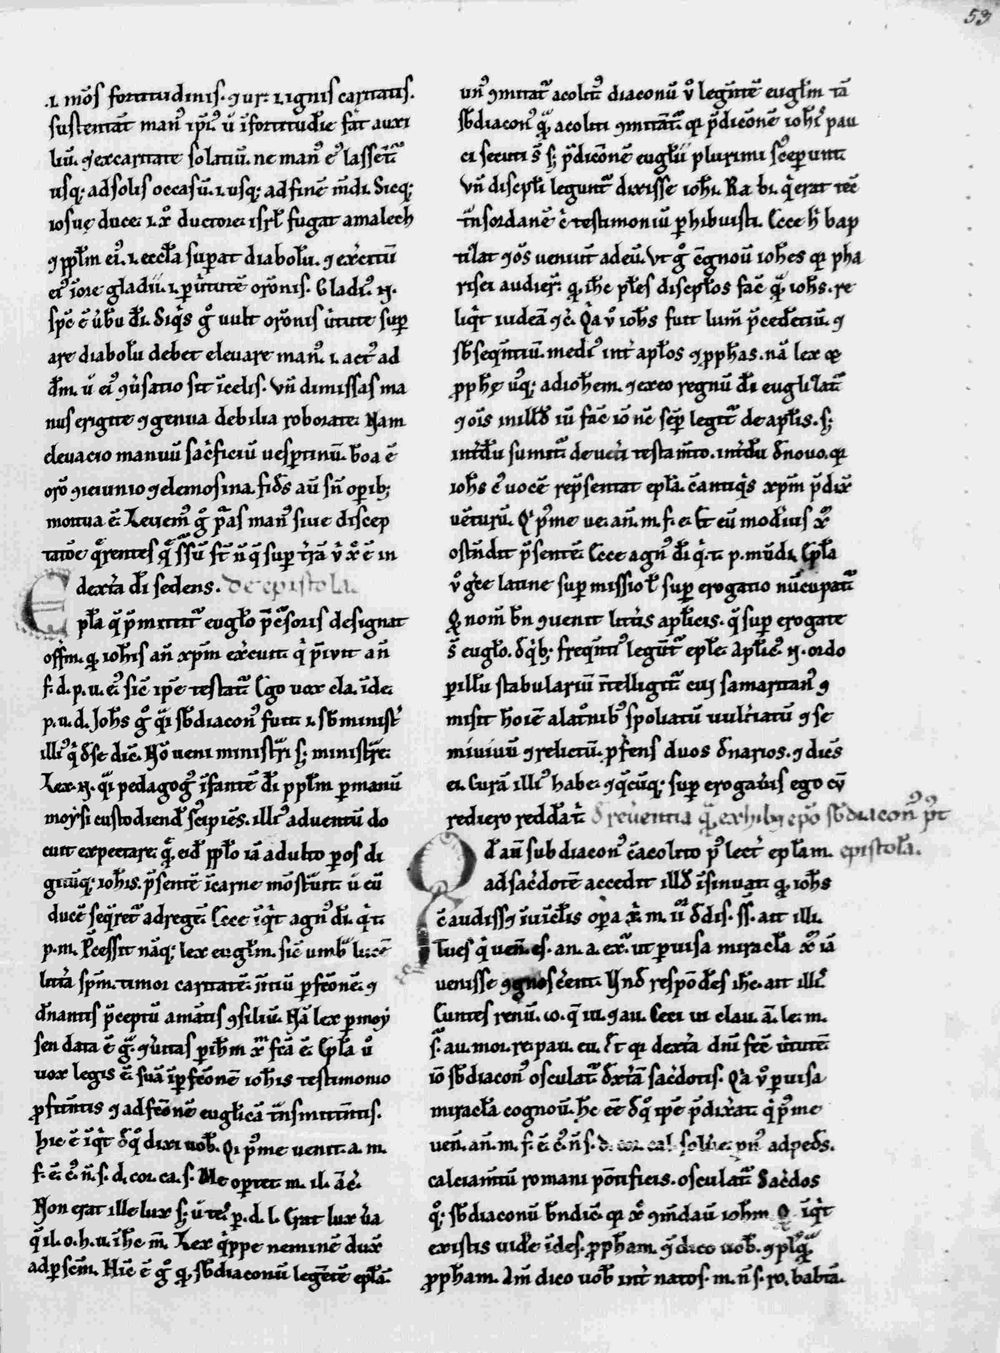 53
.i. mōs fortitudinis. ⁊ ur: .i. ignis caritatis.
sustentāt man⁹ ipi⁹. ū īfortitudīe fāt auxi
liū. ⁊ excaritate solatiū. ne man⁹ e⁹ lassēt᷑
usq; adsolis occasū. .i. usq; adfinē mūdi. Sicq;
iosuę duce: .i. xp̄o ductore: isrl̄ fugat amalech
⁊ ppl̄m ei⁹. .i. eccl̄a superat diabolū. ⁊ exercitū
ei⁹ īore gladii. .i. p uirtutē orōnis. Gladi⁹. N.
spc̄ ē ūbū dī. Siqis gͦ uult orōnis uirtute sup
are diabolū debet eleuare man⁹. .i. act⁹ ad
dm̄. ū ei⁹ ⁊ūsatio sit īcelis. Vn̄ dimissas ma
nus erigite ⁊ genua debilia roborate: Nam
eleuacio manuū sacrificiū uesptinū. boa ē
orō ⁊ ieiunio ⁊ elemosina. fides aū sn̄ operib;
mortua ē. Leuem⁹ gͦ pūras man⁹ siue discep
dexta dī sedens. de epistola.
Epl̄a q̄ p̄mittit᷑ eugl̄o p̄cesoris designat
offm̄. q ioh̄is an̄ xpm̄ exeūt. q̓ p̄iuit an̄
f. d. p. u. e⁹ sic̄ ipe testat᷑ Ego uox cla. ī de:
p. u. d. Joh̄s gͦ q̄i sb̄diacon⁹ fuit .i. sb̄ ministr̄
illi⁹ q̓ d̄ se dic̄. Nō ueni ministr̄i s; ministr̄e:
Lex. N. q̄i pedagog⁹ īfantē dī ppl̄m p manū
moysi custodiend̄ scipiēs. illi⁹ aduentū do
cuit expectare: q̄ eid̄ ppl̄o iā adulto p os di
ducē seq̄ret᷑ ad regē. Ecce īqt agn⁹ dī. q̓ t̄t
p. m. P̄cessit nāq; lex eugl̄m. sic̄ umb᷑ lucē
littā spm̄. timor caritatē. initiū pfc̄onē. ⁊
dn̄antis p̄ceptū amātis ⁊siliū. Nā lex p moy
sen data ē gr̄a. ⁊ ūitas p ih̄m xp̄m fc̄a ē. Epl̄a ū
uox legis ē. suā īpfc̄onē ioh̄is testimonio
pfitentis ⁊ adfc̄onē euglicā tn̄smittentis.
hic ē īqt d̄ qͦ dixi uob̄. Qi p⁹ me uenit. a. m.
f. ē. e⁹. n̄. s. d. cor. ca. s. Me oportet m. il. ā ē.
Non erat ille lux s; ū te⁹. p. d. l. Erat lux ūa
q̄ il. o. h. u. ih̄e m̄. Lex q̓ppe neminē dux̄
adpfm̄. Hic ē gͦ q sb̄diaconū legētē epl̄ā
un⁹ ⁊mitat᷑ acolit⁹ diaconū ū legentē eugl̄m tā
sb̄diacon⁹ q̄ acoliti ⁊mitāt᷑ qr p̄dicōnē ioh̄i⁹ pau
ci secuti s̄ s; p̄dicōnē euglii plurimi sc̄eperunt
Vn̄ discipl̄i legunt᷑ dixisse ioh̄i. Rabi. q̓ erat tec̄
tn̄siordanē c̓ testimoniū phibuisti. Ecce h̄ bap
tizat ⁊ oēs ueniūt adeū. Vt gͦ c̄gnou̅ ioh̄es qr pha
risei audier̄. q ih̄e pl̄es discipl̄os fac̄ q̄ ioh̄s. re
liqt iudeā ⁊c̄. Q̄a ū ioh̄s fuit lum̄ p̄cedētiū. ⁊
sb̄seq̄ntiū. medi⁹ int̄ apl̄os ⁊ pph̄as. nā lex et
pph̄ę usq; adioh̄em. ⁊ exeo regnū dī euglizat᷑
⁊ oīs in illd̄ iū fac̄ iō nē sep̄ legit᷑ de apl̄is. s;
int̄du̅ sumit᷑ de uet̄i testam̄to. int̄du̅ d̄nouo. qr
ioh̄s c̄ uocē rep̄sentat epl̄a. c̄ antiq̄s xpm̄ p̄dix̄
uēturū. Q̓ p⁹ me ue. an̄. m. f. e. Et c̄ū mod̓nis xp̄
ostn̄dit p̄sentē. Ecce agn⁹ dī q̓. t. p. mūdi. Epl̄a
ū gr̄ce latine sup missio ł sup erogatio nu̅cupat᷑
Q nom̄ bn̄ ⁊uenit litt̓is apl̄icis. q̄ sup erogate
s̄ eugl̄o. d̄ qb; freq̄nti⁹ legit᷑ epl̄e. Apl̄ic⁹ .N. ordo
p illū stabulariū īntelligit᷑ cui samaritan⁹ ⁊
misit ho̅iē alatronib⁹ spoliatū uulneratū ⁊ se
miuiuū ⁊ relictū. pferens duos denarios. ⁊ dic̄es
ei. Curā illi⁹ habe: ⁊ q̄cūq; sup erogauis ego cū
rediero reddā t̄ d̄ reuentia q̄ exhib; epō sb̄diacon⁹ p⁹t
epistolā.
Qd̄ aū subdiacon⁹ c̄ acolito p⁹ lectā epl̄am.
ad sac̄dotē accedit illd̄ īsinuat. q ioh̄s
c̄ audiss; īuīcl̄is opa xp̄i. m. ii. d̄ dis. ss. ait illi.
Tu es q̓ uen. es. an. a. ex᷑. ut p uisa miracl̄a xp̄m iā
uenisse ⁊gnoscerent. Qn̄d̄ respōdēs ih̄e. ait illi⁹
Euntes renū. io. q̄ ui. ⁊ au. Ceci ui. clau. ā. le. m.
s̄. au. mor. re. pau. eu. Et qr dexta dn̄i fec̄ uirtutē
iō sb̄diacon⁹ osculat᷑ dxtā sac̄dotis. Q̄a ū p uisa
miracl̄a cognou̅. hc̄ eē d̄ qͦ ipe p̄dixat q̓ p⁹ me
uen̄. an̄. m. f. ē. e⁹. n̄ s. d. cor. cal. soluere. adpedes.
calciam̄tū romani pōntificis. osculat᷑ Sac̄dos
q;. sb̄diaconū bn̄dic̄. qr xp̄ ⁊m̄dau̅ ioh̄m. Q īqt
existis uide ī des. pph̄am. ⁊ dico uob̄. ⁊ plq̄
pph̄am. Am̄ dico uob̄ int̄ natos. m. n̄ s. io. babtā.